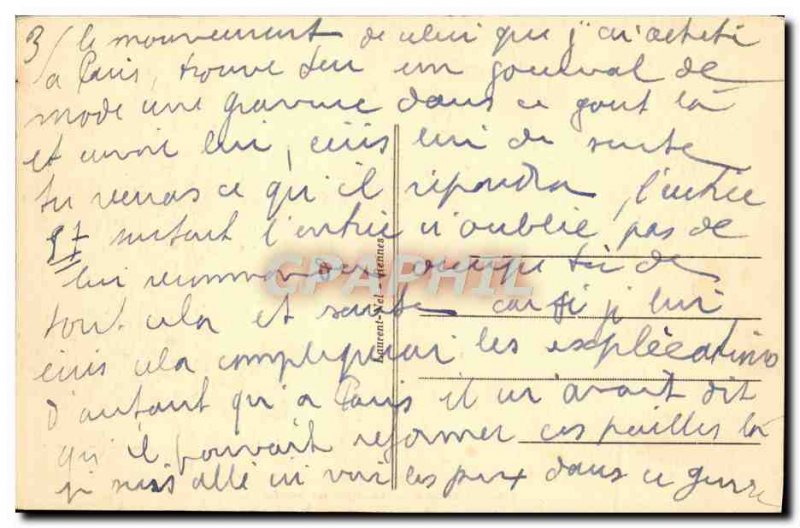 3/ le mouvement de celui que j'ai acheté
à Paris, trouve sur un journal de
mode une gravure dans ce gout là
et envoi lui, écris lui de suite
tu verras ce qu'il répondra, l'entrée
et surtout l'entrée n'oublie pas de
lui recommander occupe toi de
tout cela et sante car si j lui
écris cela compliquerai les explications
d'autant qu'à Paris il m'avait dit
qu'il pouvait reformer ces pailles là
je suis allé voir les prix dans ce genre
CPAPHIL
Laurent-Nel Rennes